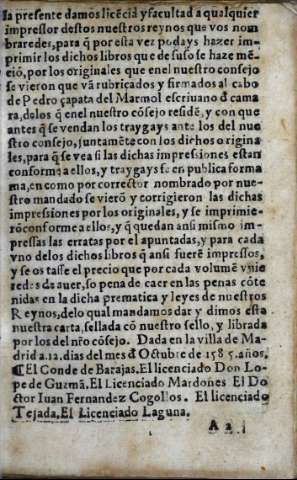 la presente damos licẽcia y facultad a qualquier
impressor destos nuestros reynos que vos nom
braredes, para q̃ por esta vez podays hazer im-
primir los dichos libros que de suso se haze mẽ-
ció, por los originales que en el nuestro consejo
se vieron que vã rubricados y firmados al cabo
de Pedro çapata del Marmol escriuano đ cama
ra, delos q̃ enel nuestro cósejo residẽ, y con que
antes q̃ se vendan los traygays ante los del nue
stro consejo, juntamẽte con los dichos origina
les, para q̃ se vea si las dichas impressiones estan
conforme a ellos, y traygays fe en publica forma
en como por corrector nombrado por nue-
stro mandado se vieró y corrigieron las dichas
impressiones por los originales, y se imprimie-
ró conforme a ellos, y q̃ quedan ansi mismo im-
pressas las erratas por el apuntadas, y para cada
vno delos dichos libros q̃ ansi fuerẽ impressos,
y se os tasse el precio que por cada volumẽ
redes de auer, so pena de caer en las penas cóte
nidas en la dicha prematica y leyes de nuestros
Reynos, delo qual mandamos dar y dimos esta
nuestra carta, sellada có nuestro sello, y librada
por los del nr̃o cósejo. Dada en la villa de Ma-
drid a. 12. dias del mes đ Octubre de 1585. años,
¶El Conde de Barajas. El licenciado Don Lo-
pe de Guzmã. El Licenciado Mardones El Do
ctor Iuan Fernandez Cogollos. El licenciado
Tejada, El Licenciado Laguna.
A 2